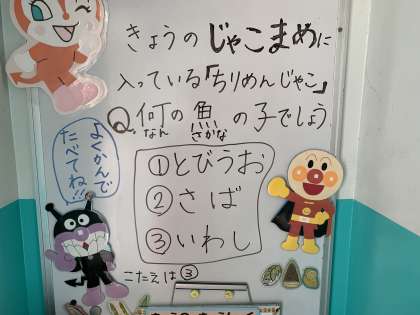 きょうのじゃこまめに
入っている「ちりめんじゃこ」
Q.何の魚の子でしょう
なん さかな
①とびうお
②さば
③いわし
よくかんで
たべてね!!
こたえは③